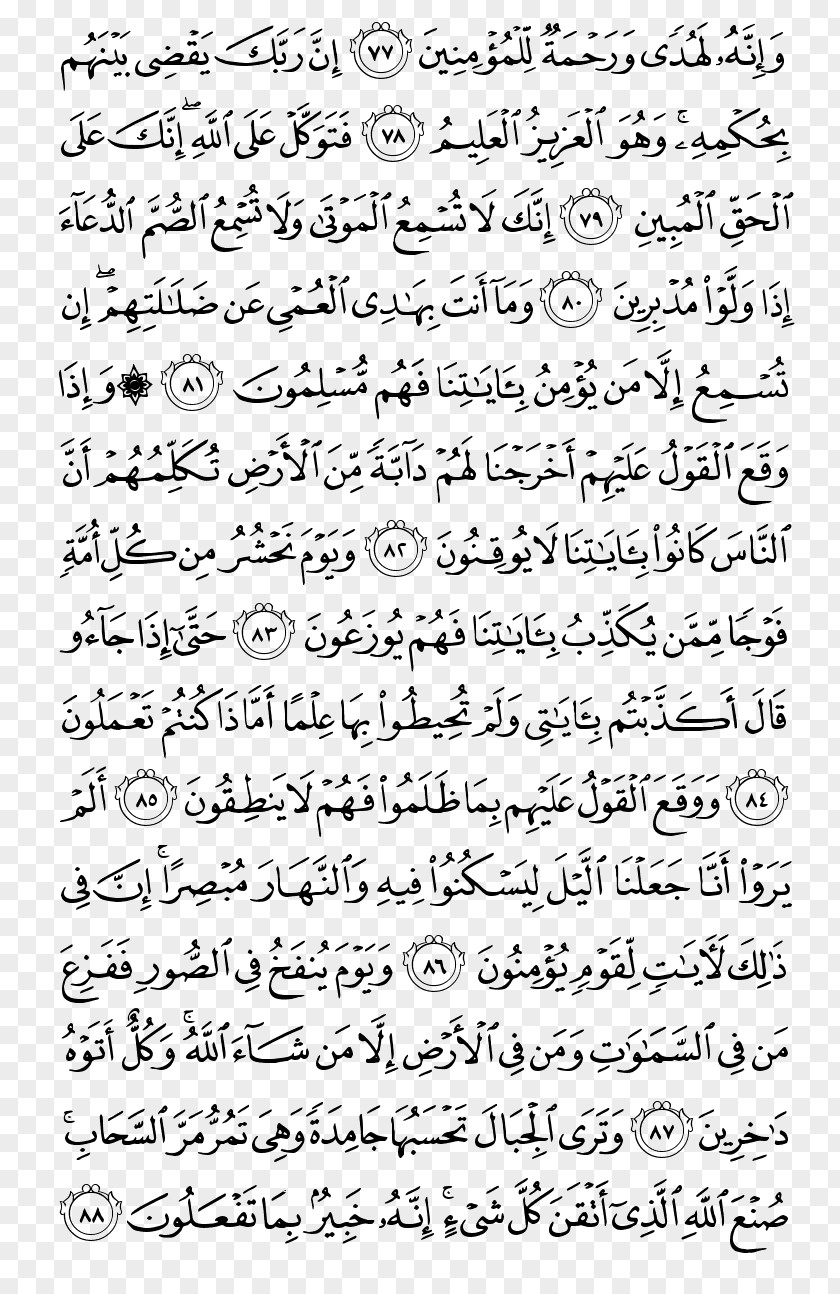 وَإِنَّهُۥ لَهُدٗى وَرَحۡمَةٞ لِّلۡمُؤۡمِنِينَ ٧٧ إِنَّ رَبَّكَ يَقۡضِي بَيۡنَهُم
بِحُكۡمِهِۦۚ وَهُوَ ٱلۡعَزِيزُ ٱلۡعَلِيمُ ٧٨ فَتَوَكَّلۡ عَلَى ٱللَّهِۖ إِنَّكَ عَلَى
ٱلۡحَقِّ ٱلۡمُبِينِ ٧٩ إِنَّكَ لَا تُسۡمِعُ ٱلۡمَوۡتَىٰ وَلَا تُسۡمِعُ ٱلصُّمَّ ٱلدُّعَآءَ
إِذَا وَلَّوۡاْ مُدۡبِرِينَ ٨٠ وَمَآ أَنتَ بِهَٰدِي ٱلۡعُمۡيِ عَن ضَلَٰلَتِهِمۡۖ إِن
تُسۡمِعُ إِلَّا مَن يُؤۡمِنُ بِـَٔايَٰتِنَا فَهُم مُّسۡلِمُونَ ٨١ ۞ وَإِذَا
وَقَعَ ٱلۡقَوۡلُ عَلَيۡهِمۡ أَخۡرَجۡنَا لَهُمۡ دَآبَّةٗ مِّنَ ٱلۡأَرۡضِ تُكَلِّمُهُمۡ أَنَّ
ٱلنَّاسَ كَانُواْ بِـَٔايَٰتِنَا لَا يُوقِنُونَ ٨٢ وَيَوۡمَ نَحۡشُرُ مِن كُلِّ أُمَّةٖ
فَوۡجٗا مِّمَّن يُكَذِّبُ بِـَٔايَٰتِنَا فَهُمۡ يُوزَعُونَ ٨٣ حَتَّىٰٓ إِذَا جَآءُو
قَالَ أَكَذَّبۡتُم بِـَٔايَٰتِي وَلَمۡ تُحِيطُواْ بِهَا عِلۡمًا أَمَّاذَا كُنتُمۡ تَعۡمَلُونَ
٨٤ وَوَقَعَ ٱلۡقَوۡلُ عَلَيۡهِم بِمَا ظَلَمُواْ فَهُمۡ لَا يَنطِقُونَ ٨٥ أَلَمۡ
يَرَوۡاْ أَنَّا جَعَلۡنَا ٱلَّيۡلَ لِيَسۡكُنُواْ فِيهِ وَٱلنَّهَارَ مُبۡصِرًاۚ إِنَّ فِي
ذَٰلِكَ لَأٓيَٰتٖ لِّقَوۡمٖ يُؤۡمِنُونَ ٨٦ وَيَوۡمَ يُنفَخُ فِي ٱلصُّورِ فَفَزِعَ
مَن فِي ٱلسَّمَٰوَٰتِ وَمَن فِي ٱلۡأَرۡضِ إِلَّا مَن شَآءَ ٱللَّهُۚ وَكُلٌّ أَتَوۡهُ
دَٰخِرِينَ ٨٧ وَتَرَى ٱلۡجِبَالَ تَحۡسَبُهَا جَامِدَةٗ وَهِيَ تَمُرُّ مَرَّ ٱلسَّحَابِۚ
صُنۡعَ ٱللَّهِ ٱلَّذِيٓ أَتۡقَنَ كُلَّ شَيۡءٍۚ إِنَّهُۥ خَبِيرُۢ بِمَا تَفۡعَلُونَ ٨٨